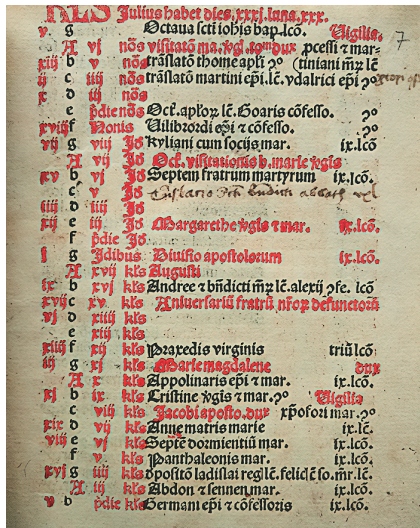 KLS Julius habet dies .xxxj. luna .xxx.
g Octaua scti iohis bap. lcō. Vigilia. 7
v A vj nōs visitatō ma. ṽgl. dux pcessi ⁊ mar-
xiij b v nōs trāslatō thome apli ⁊° (tiniani m̃z lē
ij c iiij nōs trāslatō martini ep̄i. lē. vdalrici ep̄i ⁊°
x d iij nōs
e pdie nōs Oct̄. aplo⁊ lē. Goaris cōfesso. ⁊°
xviij f Nonis Uilibrordi ep̄i ⁊ cōfesso. ⁊°
vij g viij Jd Kyliani cum socijs mar. ix.lcō
A vij Jd Oct̄. visitationis b. marie ṽgis
xv b vj Jd Septem fratrum martyrum ix.lcō.
c v Jd
iiij d iiij Jd
xij e iij Jd Margarethe ṽgis ⁊ mar. ix.lcō.
f pdie Jd
j g Jdibus Diuisio apostolorum ix.lcō.
A xvij kls Augusti
ix b xvj kls Andree ⁊ bn̄dicti m̃z lē. alexij ɔfe. lcō
xvij c xv kls Aniuersariū fratrū nr̄o⁊ defunctorū
vj d xiiij kls
e xiij kls
xiiij f xij kls Praxedis virginis triū lcō.
iij g xj kls Marie magdalene dux
A x kls Appolinaris ep̄i ⁊ mar. ix.lcō.
xj b ix kls Cristine ṽgis ⁊ mar. ⁊° Vigilia
c viij kls Jacobi aposto. dux xp̄ofori mar. ⁊°
xix d vij kls Anne matris marie ix.lē.
viij e vj kls Septē dormientiū mar. ix.lcō.
f v kls Panthaleonis mar. ix.lcō.
xvj g iiij kls Dpositō ladislai reg̃ lē. felicl so. m̄r. lē
v A iij kls Abdon ⁊ sennen mar. ix.lcō.
b pdie kls Germani ep̄i ⁊ cōfessoris ix.lcō.